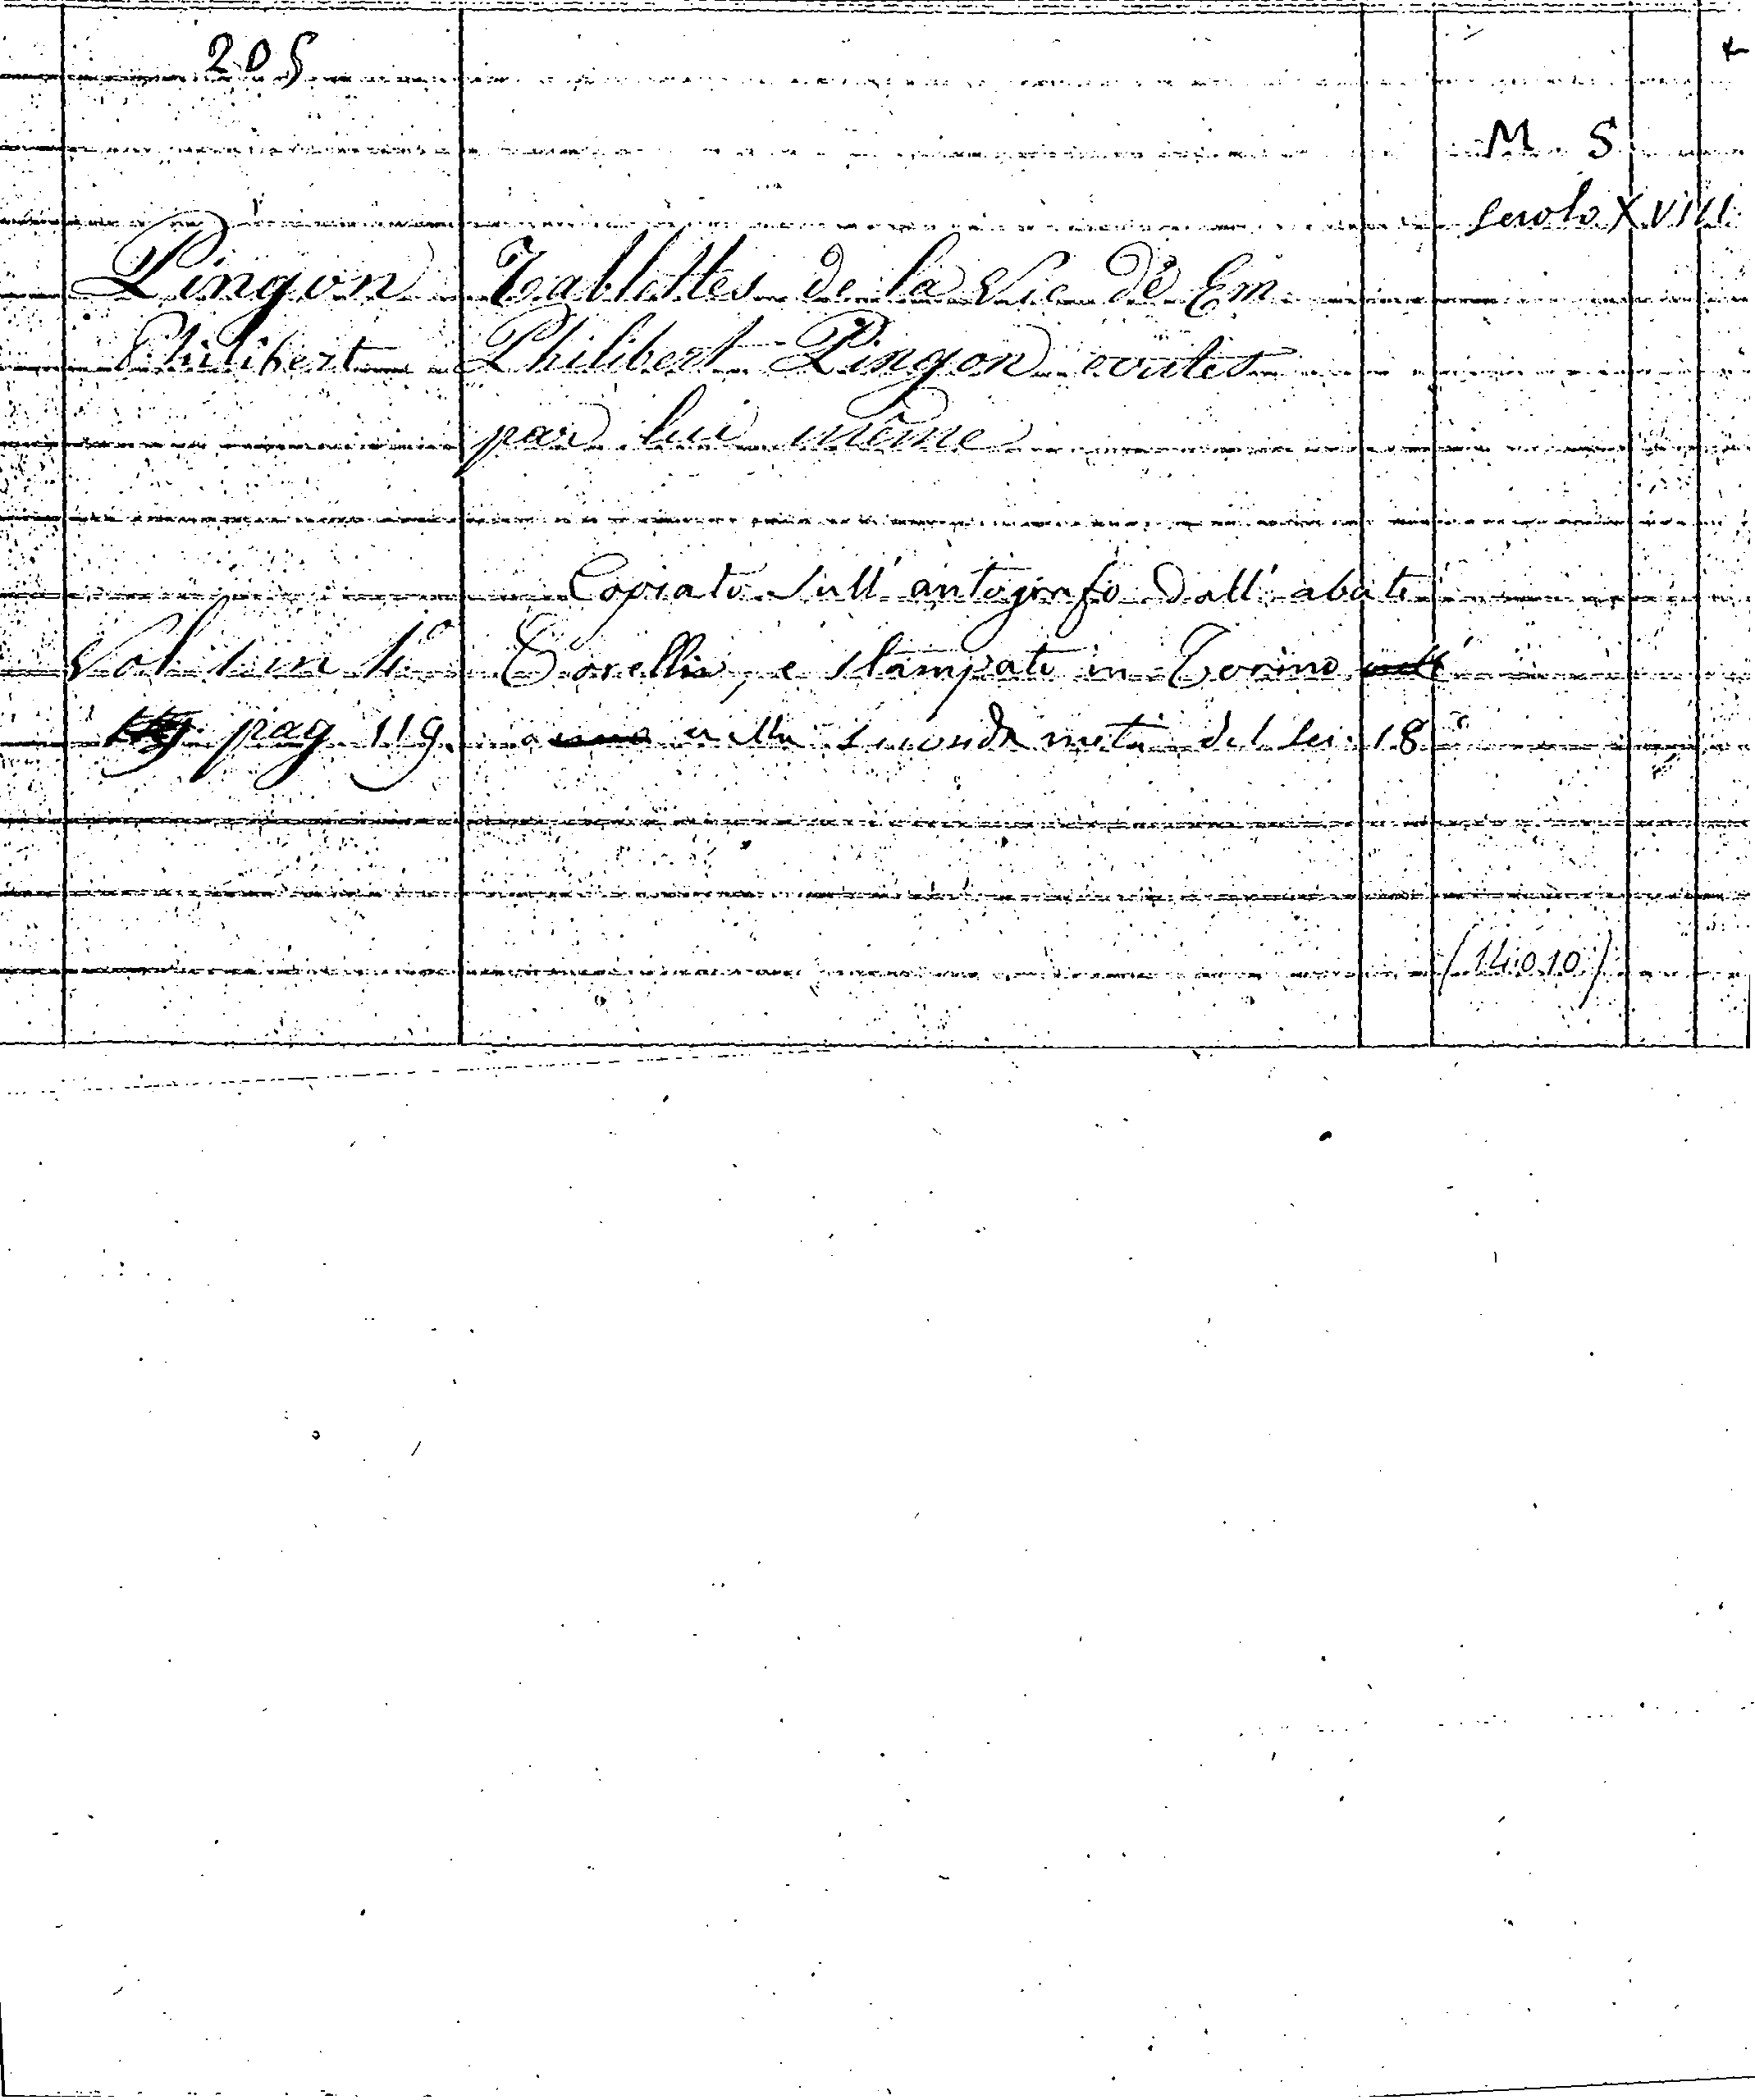 205
M. S.
secolo XVIII
Pingon Tablettes de la Vie de Em.
Philibert Philibert Pingon ecrites
par lui même
Copiato sull' autografo dall' abate
Vol. 1 in 4° Torelli, e stampate in Torino
pag 119. nella seconda metà del sec. 18°
(14010)